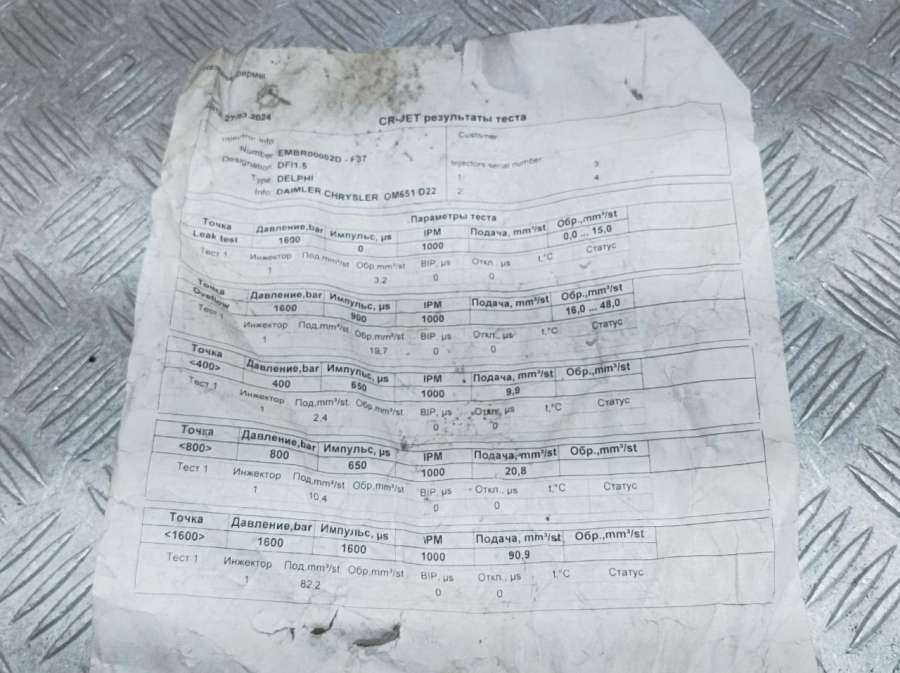 27.03.2024
CR-JET результаты теста
Injector info
Customer
Number EMBR00002D - F37
Designation DFI1.5
Injectors serial number
1
3
Type DELPHI
2
4
Info DAIMLER CHRYSLER OM651 D22
Параметры теста
Точка Давление,bar Импульс, µs IPM Подача, mm³/st Обр.,mm³/st
Leak test 1600 0 1000 0,0 ... 15,0
Тест 1 Инжектор Под.mm³/st Обр.mm³/st BIP, µs Откл., µs t,°C Статус
1 3,2 0 0
Точка Давление,bar Импульс, µs IPM Подача, mm³/st Обр.,mm³/st
1600 900 1000 16,0 ... 48,0
Тест 1 Инжектор Под.mm³/st Обр.mm³/st BIP, µs Откл., µs t,°C Статус
1 19,7 0 0
Точка Давление,bar Импульс, µs IPM Подача, mm³/st Обр.,mm³/st
<400> 400 650 1000 9,9
Тест 1 Инжектор Под.mm³/st Обр.mm³/st BIP, µs Откл., µs t,°C Статус
1 2,4 0 0
Точка Давление,bar Импульс, µs IPM Подача, mm³/st Обр.,mm³/st
<800> 800 650 1000 20,8
Тест 1 Инжектор Под.mm³/st Обр.mm³/st BIP, µs Откл., µs t,°C Статус
1 10,4 0 0
Точка Давление,bar Импульс, µs IPM Подача, mm³/st Обр.,mm³/st
<1600> 1600 1600 1000 90,9
Тест 1 Инжектор Под.mm³/st Обр.mm³/st BIP, µs Откл., µs t,°C Статус
1 82,2 0 0